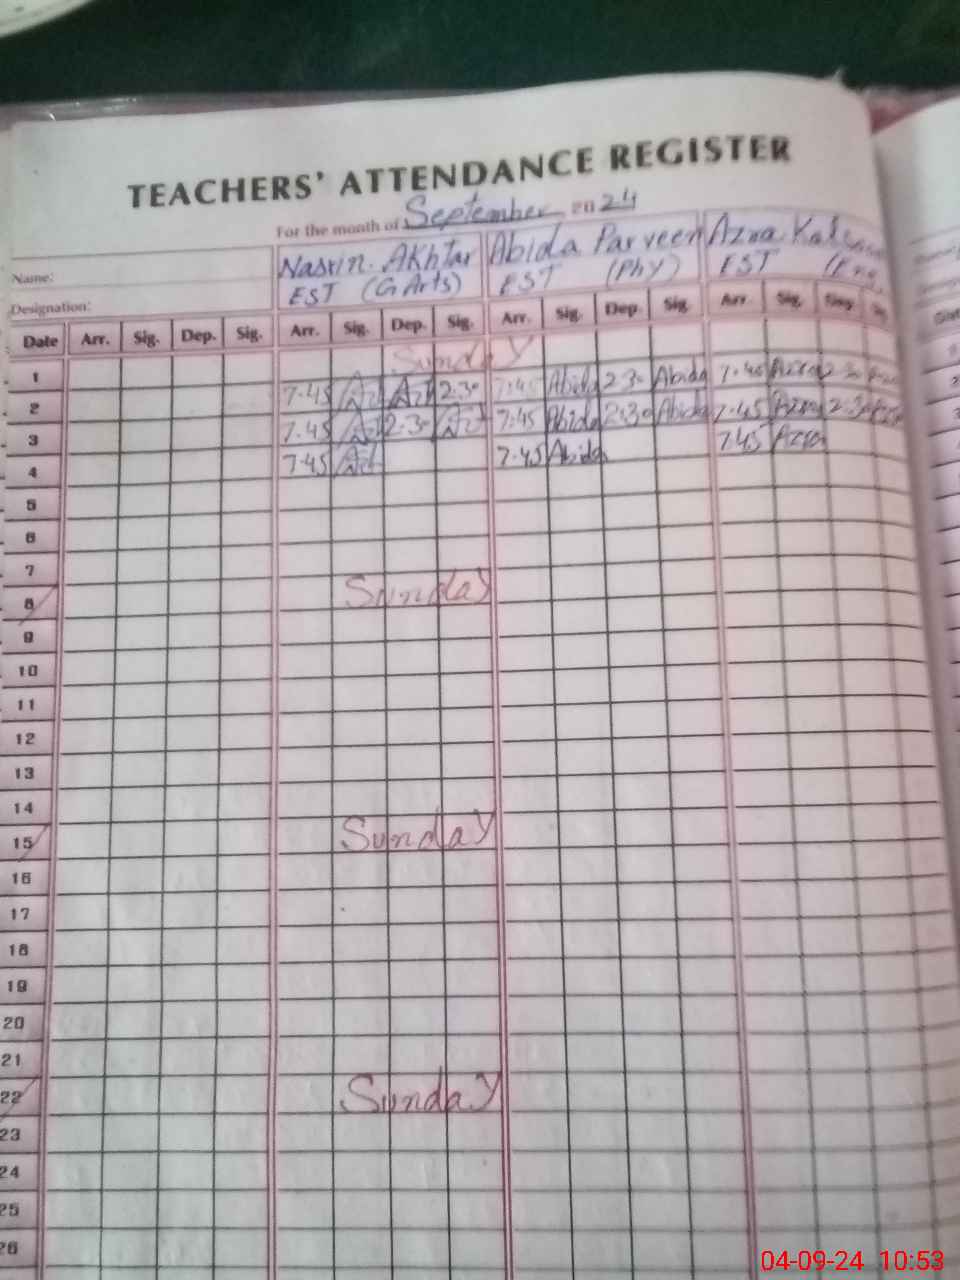 TEACHERS' ATTENDANCE REGISTER
For the month of September 2024
Name: Nasrin. Akhtar Abida Parveen Azra
Designation: EST (G Arts) EST (Phy) EST
Date Arr. Sig. Dep. Sig. Arr. Sig. Dep. Sig. Arr. Sig. Dep. Sig. Arr. Sig. Dep.
1 Sunday
2 7.45 2.30 7.45 Abida 2.30 Abida 7.45 Azra 2.30
3 7.45 2.30 7.45 Abida 2.30 Abida 7.45 Azra 2.30
4 7.45 7.45 Abida 7.45 Azra
5
6
7
8 Sunday
9
10
11
12
13
14
15 Sunday
16
17
18
19
20
21
22 Sunday
23
24
25
26
04-09-24 10:53